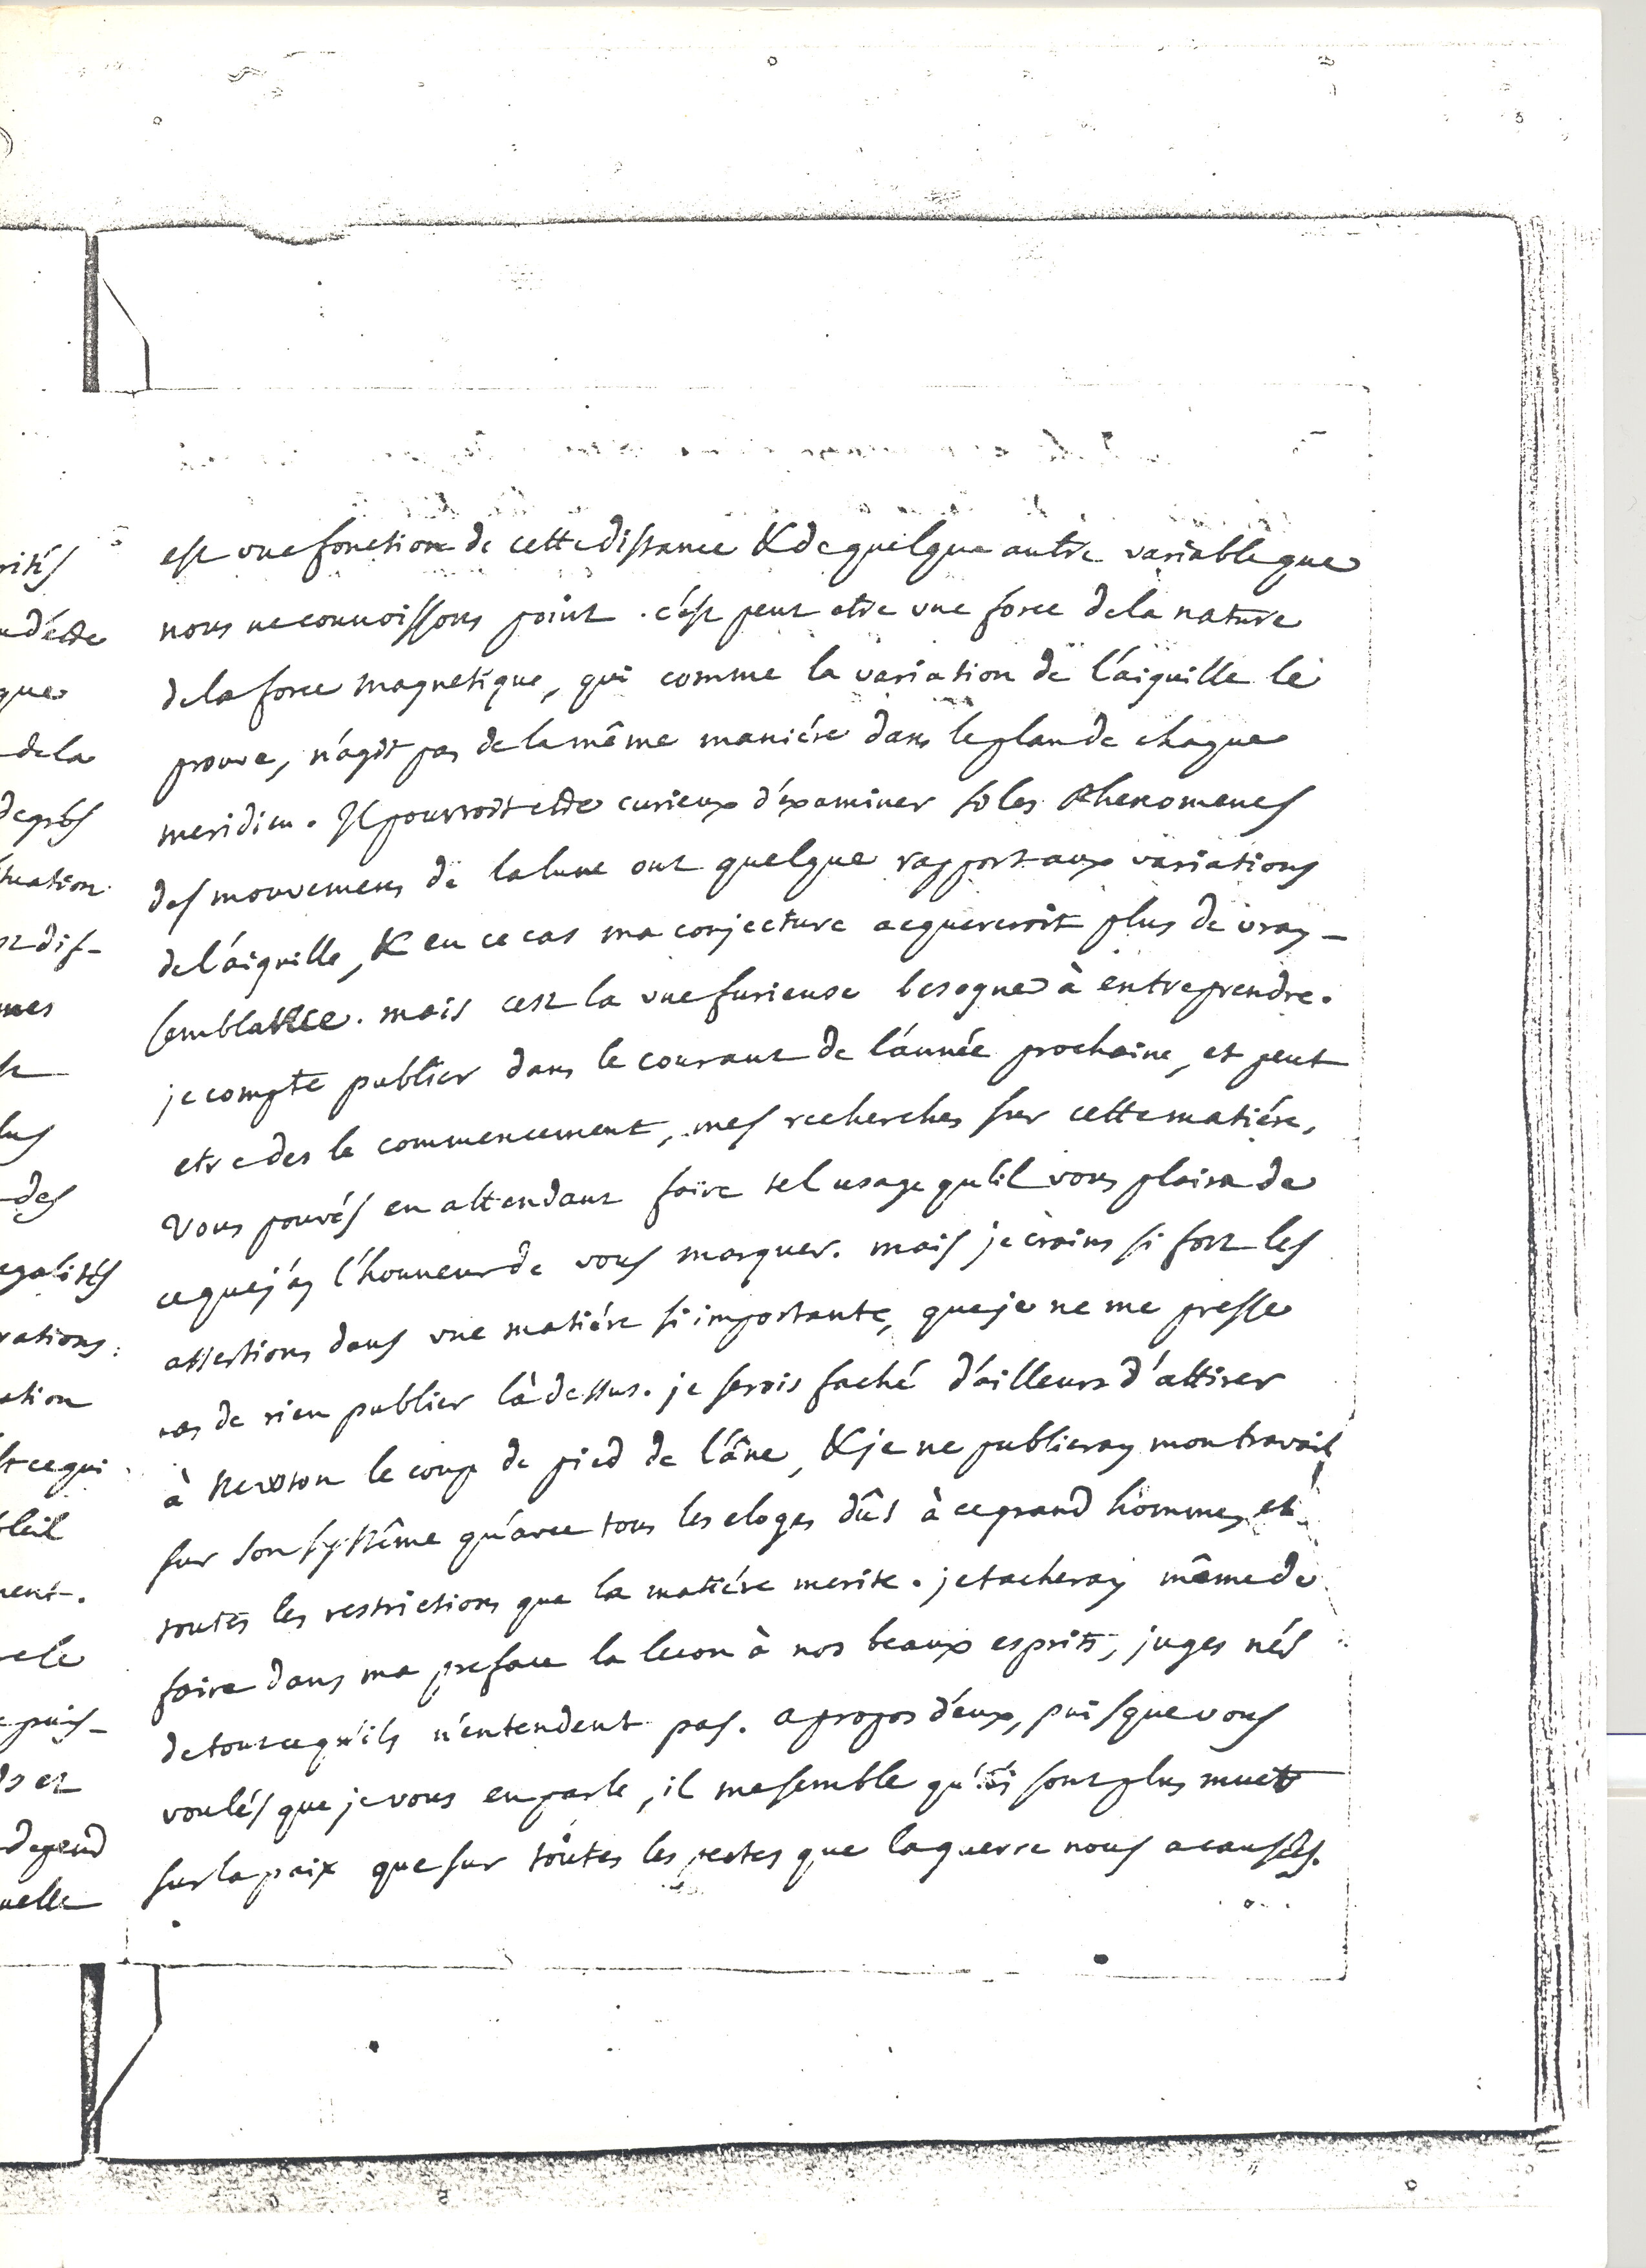 est une fonction de cette distance & de quelque autre variable que
nous ne connoissons point. c'est peut etre une force de la nature
de la force magnetique, qui comme la variation de l'aiguille le
prouve, n'agit pas de la même maniére dans le plan de chaque
meridien. Il pourroit etre curieux d'éxaminer si les Phenomenes
des mouvemens de la lune ont quelque rapport aux variations
de l'aiguille, & en ce cas ma conjecture acquereroit plus de vray-
semblance. mais c'est la une furieuse besogne à entreprendre.
je compte publier dans le courant de l'année prochaine, et peut
etre des le commencement, mes recherches sur cette matiére,
vous pouvés en attendant faire tel usage qu'il vous plaira de
ce que j'ay l'honneur de vous marquer. mais je crains si fort les
assertions dans une matiére si importante, que je ne me presse
pas de rien publier là dessus. je serois faché d'ailleurs d'attirer
à Newton le coup de pied de l'âne, & je ne publieray mon travail
sur son systême qu'avec tous les eloges dûs à ce grand homme, et
toutes les restrictions que la matiére merite. je tacheray même de
faire dans ma preface la lecon à nos beaux esprits, juges nés
de tout ce qu'ils n'entendent pas. a propos d'eux, puisque vous
voulés que je vous en parle, il me semble qu'ils sont plus muets
sur la paix que sur toutes les pertes que la guerre nous a causées.
rités
d'etre
que
de la
degrés
ituation
dif-
mes
des
egalités
rations.
ation
ce qui
oleil
ment.
puis-
depend
uelle